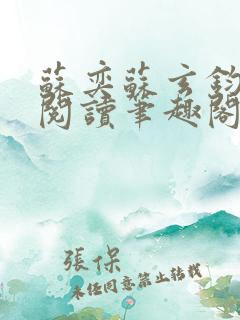 蘇奕蘇玄鈞
閱讀筆趣閣
張保
未經同意禁止轉載